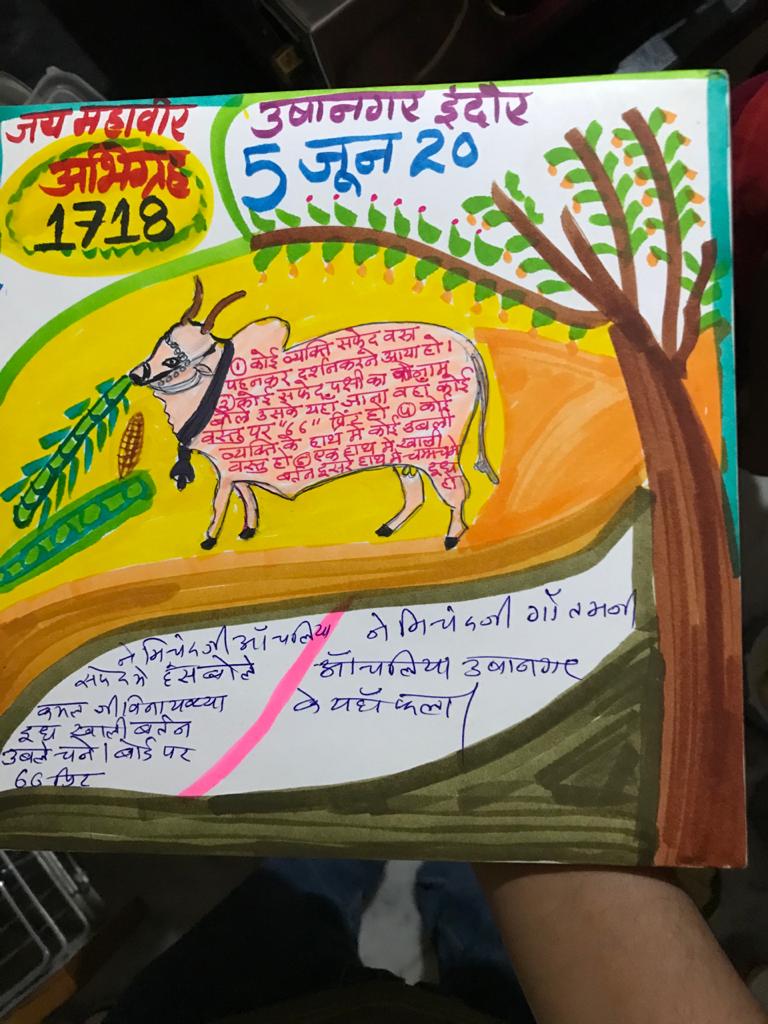 जय महावीर
अभिग्रह
1718
उषानगर इंदौर
5 जून 20
① कोई व्यक्ति सफेद वस्त्र
पहनकर दर्शन करने आया हो।
② कोई सफेद पक्षी का नाम
बोले उसके यहाँ जाना वहाँ कोई
वस्तु पर "66" प्रिंट हो ④ कोई
व्यक्ति के हाथ में कोई उबली
वस्तु हो ⑤ एक हाथ में खाली
बर्तन दूसरे हाथ में चम्मच में
दूध हो
नेमिचंदजी आँचलिया
सफेद में हंस बोले
कमल जी विनायक्या
दूध खाली बर्तन
उबले चने। बोर्ड पर
66 प्रिंट
नेमिचंदजी गौतमजी
आँचलिया उषानगर
के यहाँ फला।